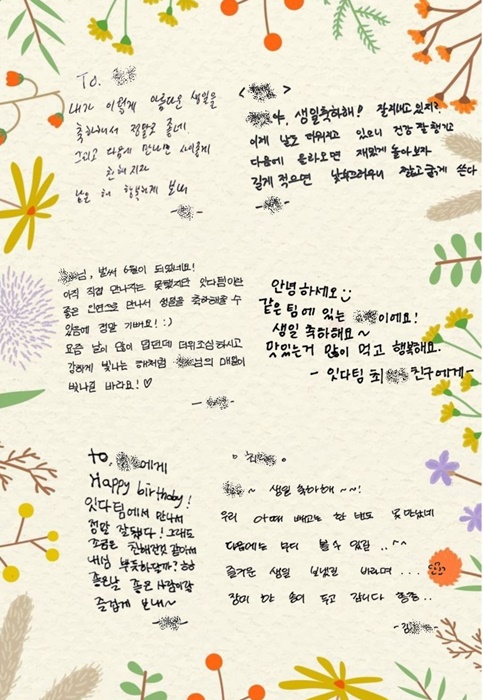 To.
내가 이렇게 아름다운 생일을
축하해서 정말로 좋네
그리고 다음에 만나면 새롭게
친해지자
남은 해 행복하게 보내
< >
야, 생일축하해! 잘지내고 있지?
이제 날도 더워지고 있으니 건강 잘 챙기고
다음에 놀라오면 재밌게 놀아보자
길게 적으면 낯부끄러우니 짧고 굵게 쓴다
님, 벌써 6월이 되었네요!
아직 직접 만나지는 못했지만 잇다팀이란
좋은 인연으로 만나서 생일을 축하해줄 수
있음에 정말 기뻐요! :)
요즘 날이 많이 덥던데 더위조심하시고
강하게 빛나는 해처럼 님의 매일이
빛나길 바라요! ♡
안녕하세요
같은 팀에 있는 이에요!
생일 축하해요~
맛있는거 많이 먹고 행복해요.
- 잇다팀 최 친구에게-
to. 에게
Happy birthday!
잇다팀에서 만나서
정말 잘됐다! 그래도
조금은 친해진것 같아서
내심 뿌듯하달까? ㅎㅎ
좋은날 좋은 사람이랑
즐겁게 보내~
~ 생일 축하해 ~~!
우리 아때 빼고는 한 번도 못 만났네
다음에는 부디 볼 수 있길 ..^^
즐거운 생일 보냈길 바라며 ...
장미 한 송이 두고 갑니다 총총 ..
-김